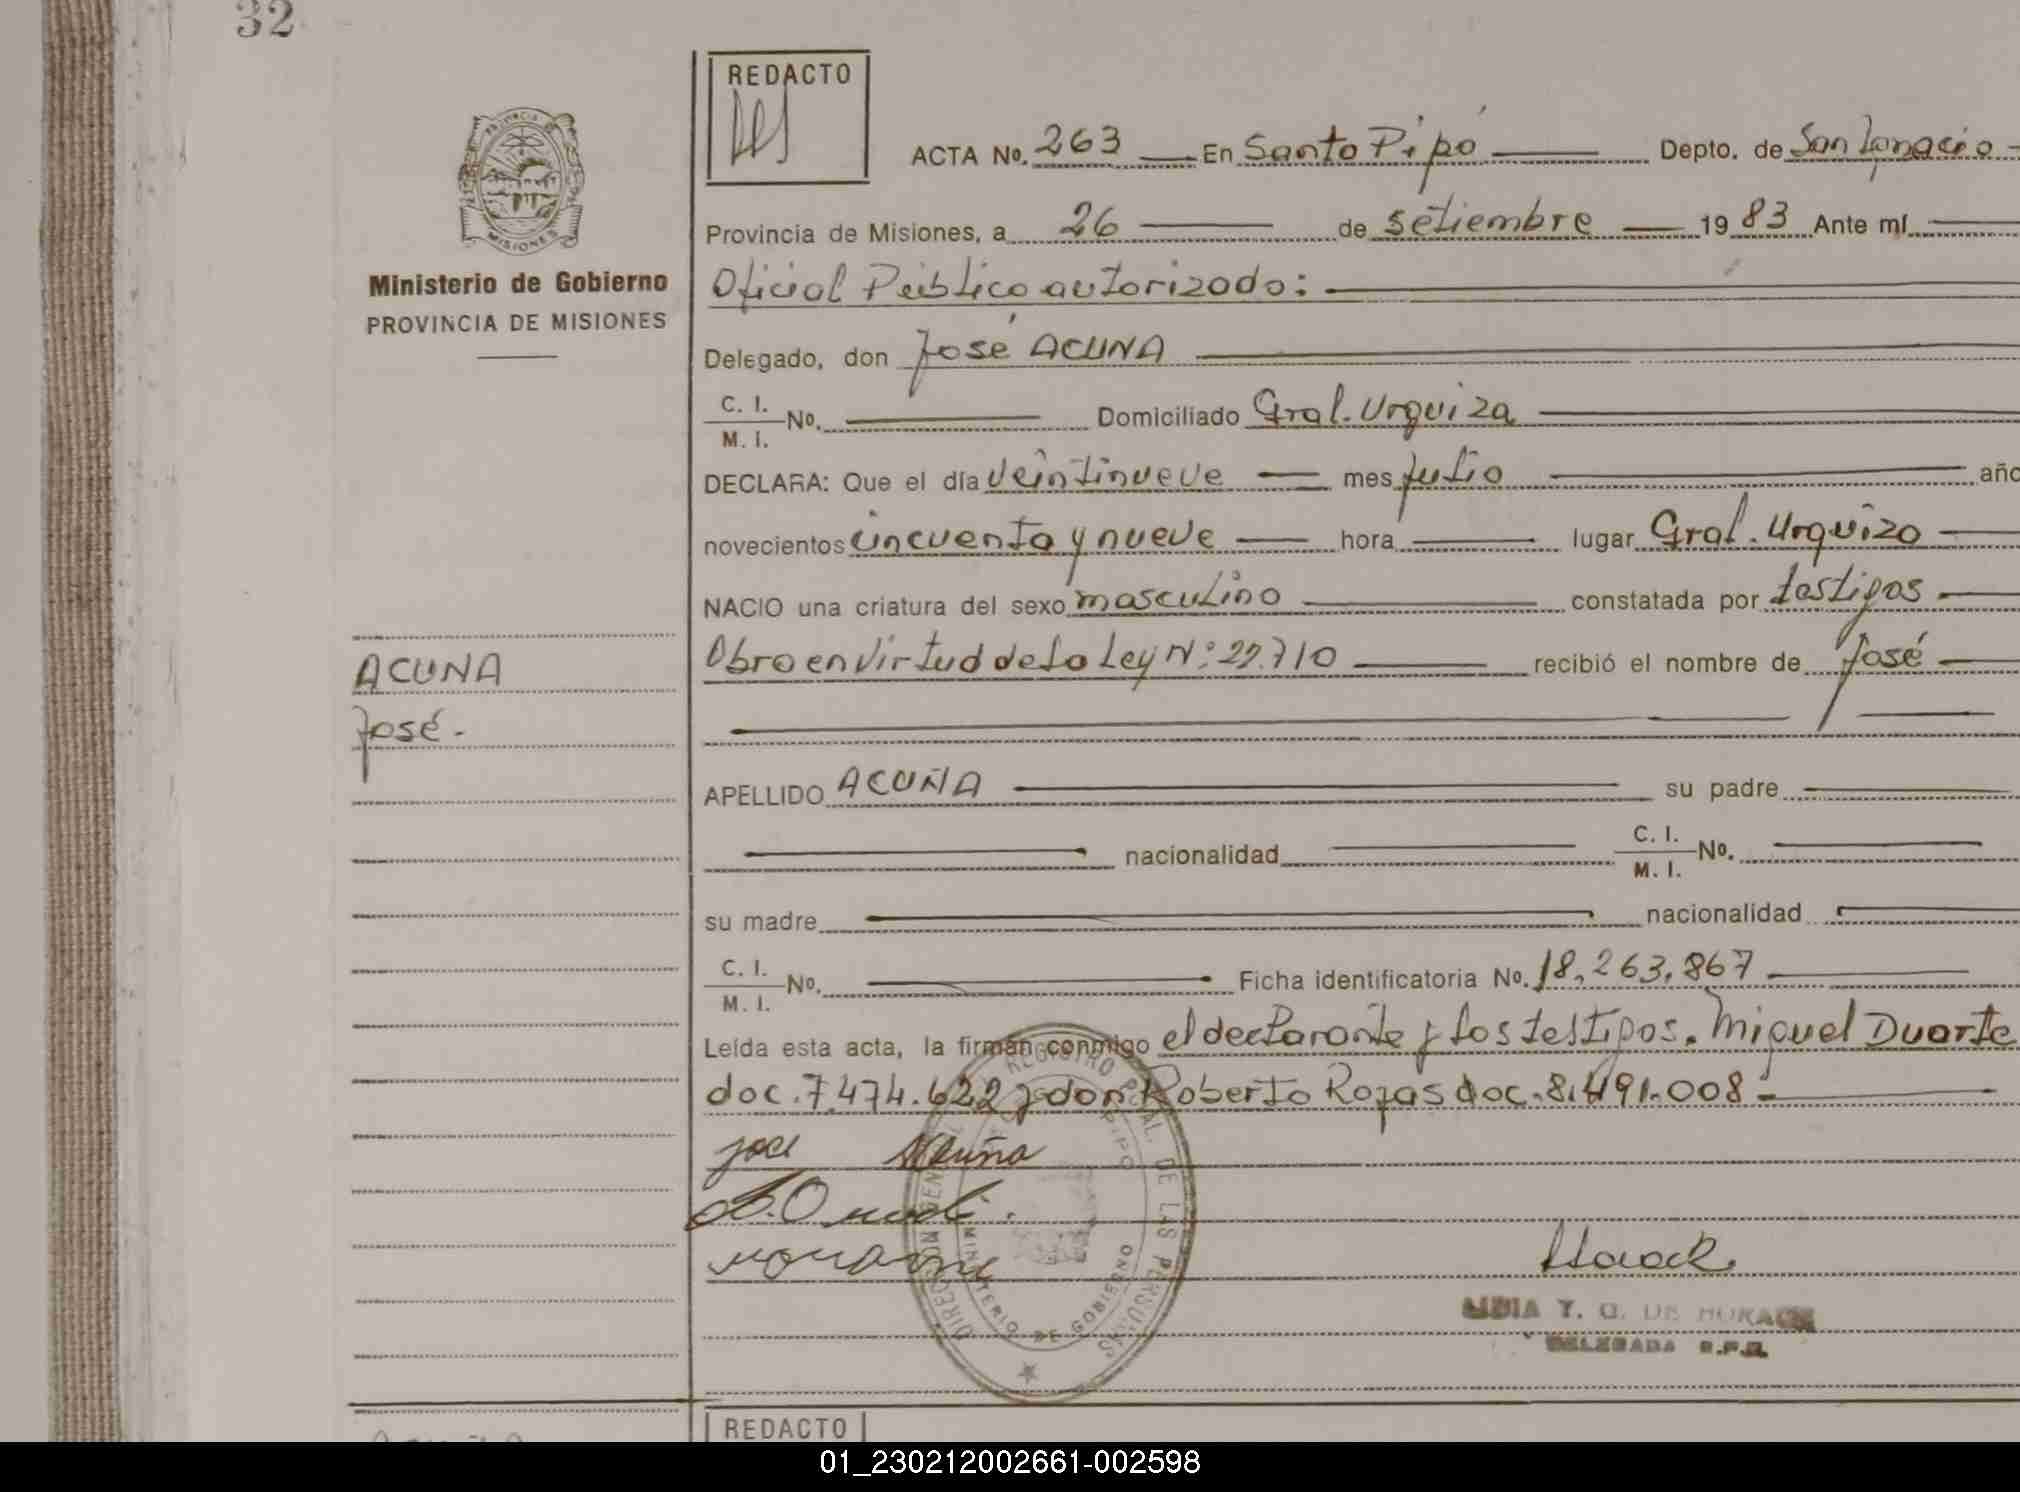 32
REDACTO
ACTA No. 263 En Santo Pipó Depto. de San Ignacio
PROVINCIA DE
MISIONES
Provincia de Misiones, a 26 de setiembre 1983 Ante mí
Ministerio de Gobierno
PROVINCIA DE MISIONES
Oficial Público autorizado:
Delegado, don José ACUNA
C. I.
M. I. No. Domiciliado Gral. Urquiza
DECLARA: Que el día veintinueve mes julio año
novecientos cincuenta y nueve hora lugar Gral. Urquiza
NACIO una criatura del sexo masculino constatada por testigos
Obro en virtud de la Ley N: 22.710 recibió el nombre de José
ACUNA
José.-
APELLIDO ACUÑA su padre
nacionalidad C. I.
M. I. No.
su madre nacionalidad
C. I.
M. I. No. Ficha identificatoria No. 18.263.867
Leída esta acta, la firman conmigo el declarante y los testigos. Miguel Duarte
doc. 7.474.622 y don Roberto Rojas doc. 8.491.008 -
jose Acuña
DIRECCION GENERAL REGISTRO PCIAL. DE LAS PERSONAS
MINISTERIO DE GOBIERNO
PIPO
LIDIA Y. G. DE HORACK
DELEGADA R.P.P.
REDACTO
01_230212002661-002598